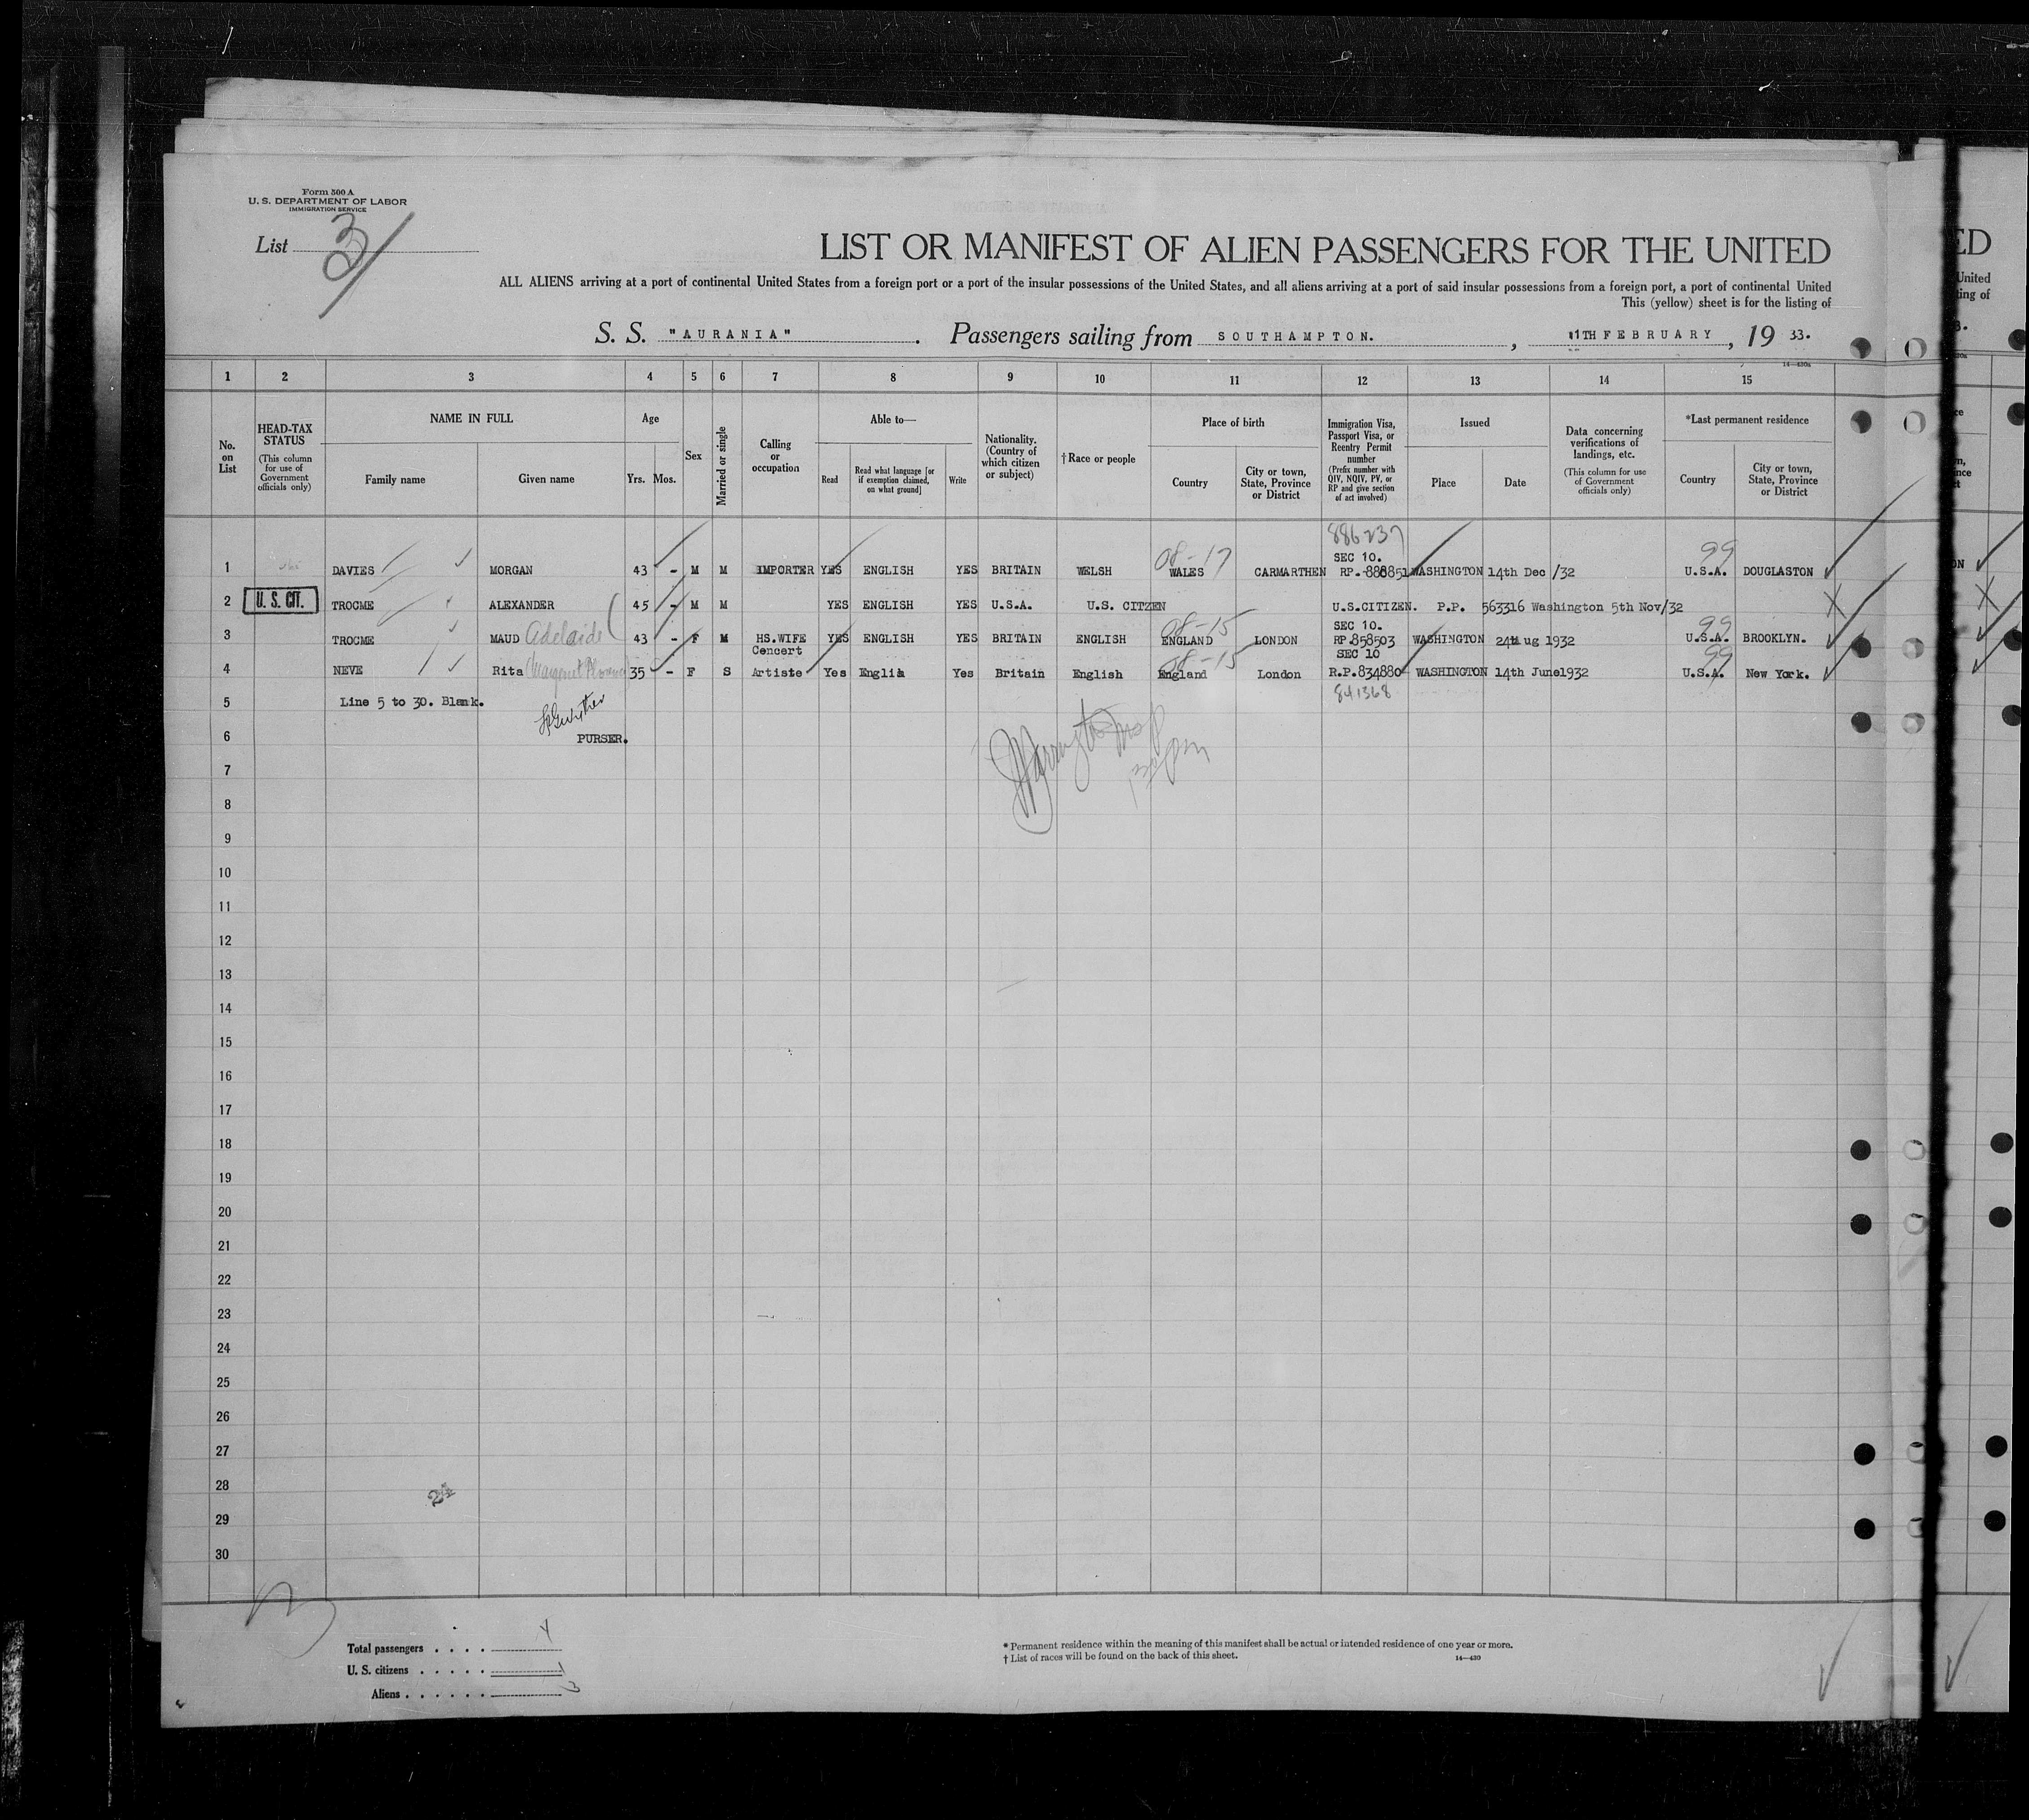 Form 500 A
U. S. DEPARTMENT OF LABOR
IMMIGRATION SERVICE
List 3
LIST OR MANIFEST OF ALIEN PASSENGERS FOR THE UNITED
ALL ALIENS arriving at a port of continental United States from a foreign port or a port of the insular possessions of the United States, and all aliens arriving at a port of said insular possessions from a foreign port, a port of continental United
This (yellow) sheet is for the listing of
S. S. "AURANIA". Passengers sailing from SOUTHAMPTON. , 11TH FEBRUARY , 19 33.
14—430a
1 2 3 4 5 6 7 8 9 10 11 12 13 14 15
No. on List
HEAD-TAX STATUS (This column for use of Government officials only)
NAME IN FULL
Family name Given name
Age
Yrs. Mos.
Sex
Married or single
Calling or occupation
Able to—
Read
Read what language [or if exemption claimed, on what ground]
Write
Nationality. (Country of which citizen or subject)
†Race or people
Place of birth
Country
City or town, State, Province or District
Immigration Visa, Passport Visa, or Reentry Permit number (Prefix number with QIV, NQIV, PV, or RP and give section of act involved)
Issued
Place Date
Data concerning verifications of landings, etc. (This column for use of Government officials only)
*Last permanent residence
Country
City or town, State, Province or District
886237
08-17 SEC 10. 99
1 DAVIES MORGAN 43 - M M IMPORTER YES ENGLISH YES BRITAIN WELSH WALES CARMARTHEN RP.-888851 WASHINGTON 14th Dec /32 U.S.A. DOUGLASTON
2 U. S. CIT. TROCME ALEXANDER 45 - M M YES ENGLISH YES U.S.A. U.S. CITZEN U.S.CITIZEN. P.P. 563316 Washington 5th Nov/32
08-15 SEC 10. 99
3 TROCME MAUD Adelaide 43 - F M HS.WIFE YES ENGLISH YES BRITAIN ENGLISH ENGLAND LONDON RP.858503 WASHINGTON 24th Aug 1932 U.S.A. BROOKLYN.
Concert 08-15 SEC 10 99
4 NEVE Rita (Margaret 35 - F S Artiste Yes English Yes Britain English England London R.P.834880 WASHINGTON 14th June1932 U.S.A. New York.
841368
5 Line 5 to 30. Blank.
6 PURSER.
7
8
9
10
11
12
13
14
15
16
17
18
19
20
21
22
23
24
25
26
27
28
29
30
24
Total passengers . . . . 4
U. S. citizens . . . . . 1
Aliens . . . . . . 3
* Permanent residence within the meaning of this manifest shall be actual or intended residence of one year or more.
† List of races will be found on the back of this sheet.
14—430